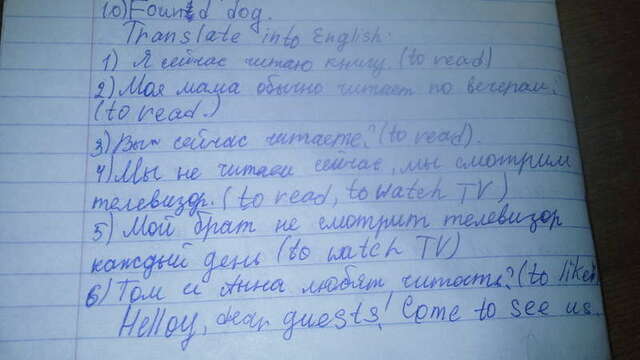 10) Found dog.
Translate into English.
1) Я сейчас читаю книгу. (to read)
2) Моя мама обычно читает по вечерам.
(to read.)
3) Вы сейчас читаете? (to read).
4) Мы не читаем сейчас, мы смотрим
телевизор. (to read, to watch TV)
5) Мой брат не смотрит телевизор
каждый день (to watch TV)
6) Том и Анна любят читать? (to like)
Helloy, dear guests! Come to see us.